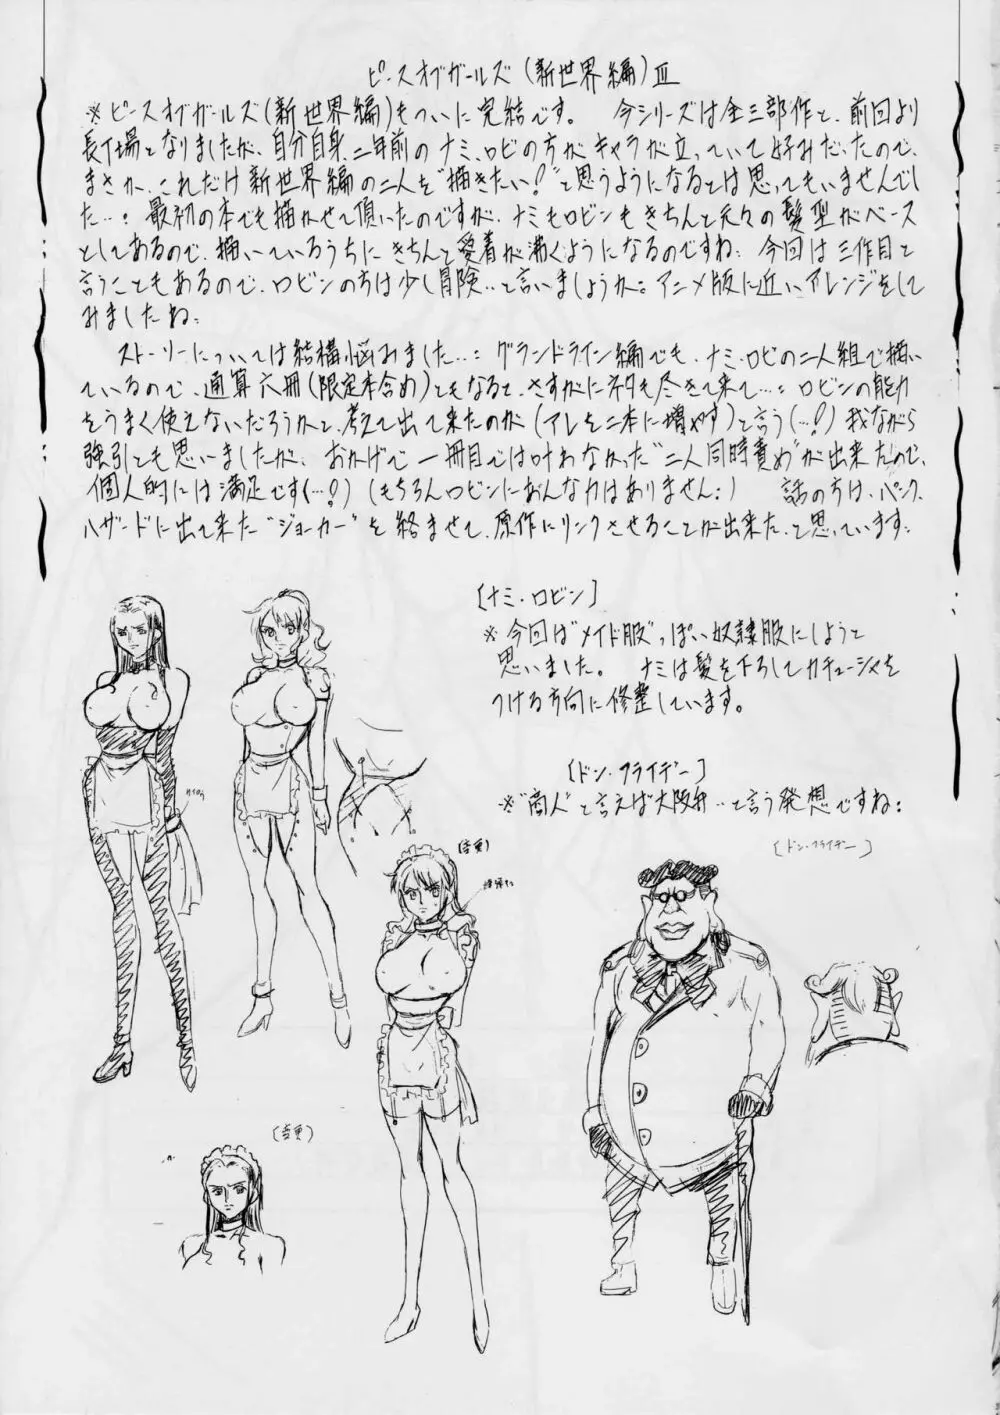 ピースオブガールズ（新世界編）Ⅲ
※ピースオブガールズ（新世界編）もついに完結です。 今シリーズは全三部作と、前回より
長丁場となりましたが、自分自身、二年前のナミ、ロビの方がキャラが立っていて好みだったので、
まさか、これだけ新世界編の二人を“描きたい！”と思うようになるとは思ってもいませんでし
た…： 最初の本でも描かせて頂いたのですが、ナミもロビンもきちんと元々の髪型がベース
としてあるので、描いているうちにきちんと愛着が沸くようになるのですね： 今回は三作目と
言うこともあるので、ロビンの方は少し冒険…と言いましょうか。アニメ版に近いアレンジをして
みましたね：
ストーリーについては結構悩みました…： グランドライン編でも、ナミ・ロビの二人組で描い
ているので、通算六冊（限定本含め）ともなると、さすがにネタも尽きて来て…： ロビンの能力
をうまく使えないだろうかと、考えて出て来たのが（アレを二本に増やす）と言う（…！）我ながら
強引とも思いましたが、おかげで一冊目では叶わなかった“二人同時責め”が出来たので、
個人的には満足です（…！）（もちろんロビンにあんな力はありません：） 話の方は、パンク
ハザードに出て来た“ジョーカー”を絡ませて、原作にリンクさせることが出来た、と思っています：
［ナミ・ロビン］
※今回は“メイド服”っぽい奴隷服にしようと
思いました。 ナミは髪を下ろしてカチューシャを
つける方向に修整しています。
［ドン・フライデー］
※“商人”と言えば大阪弁…と言う発想ですね：
［ドン・フライデー］
（変更）
（変更）